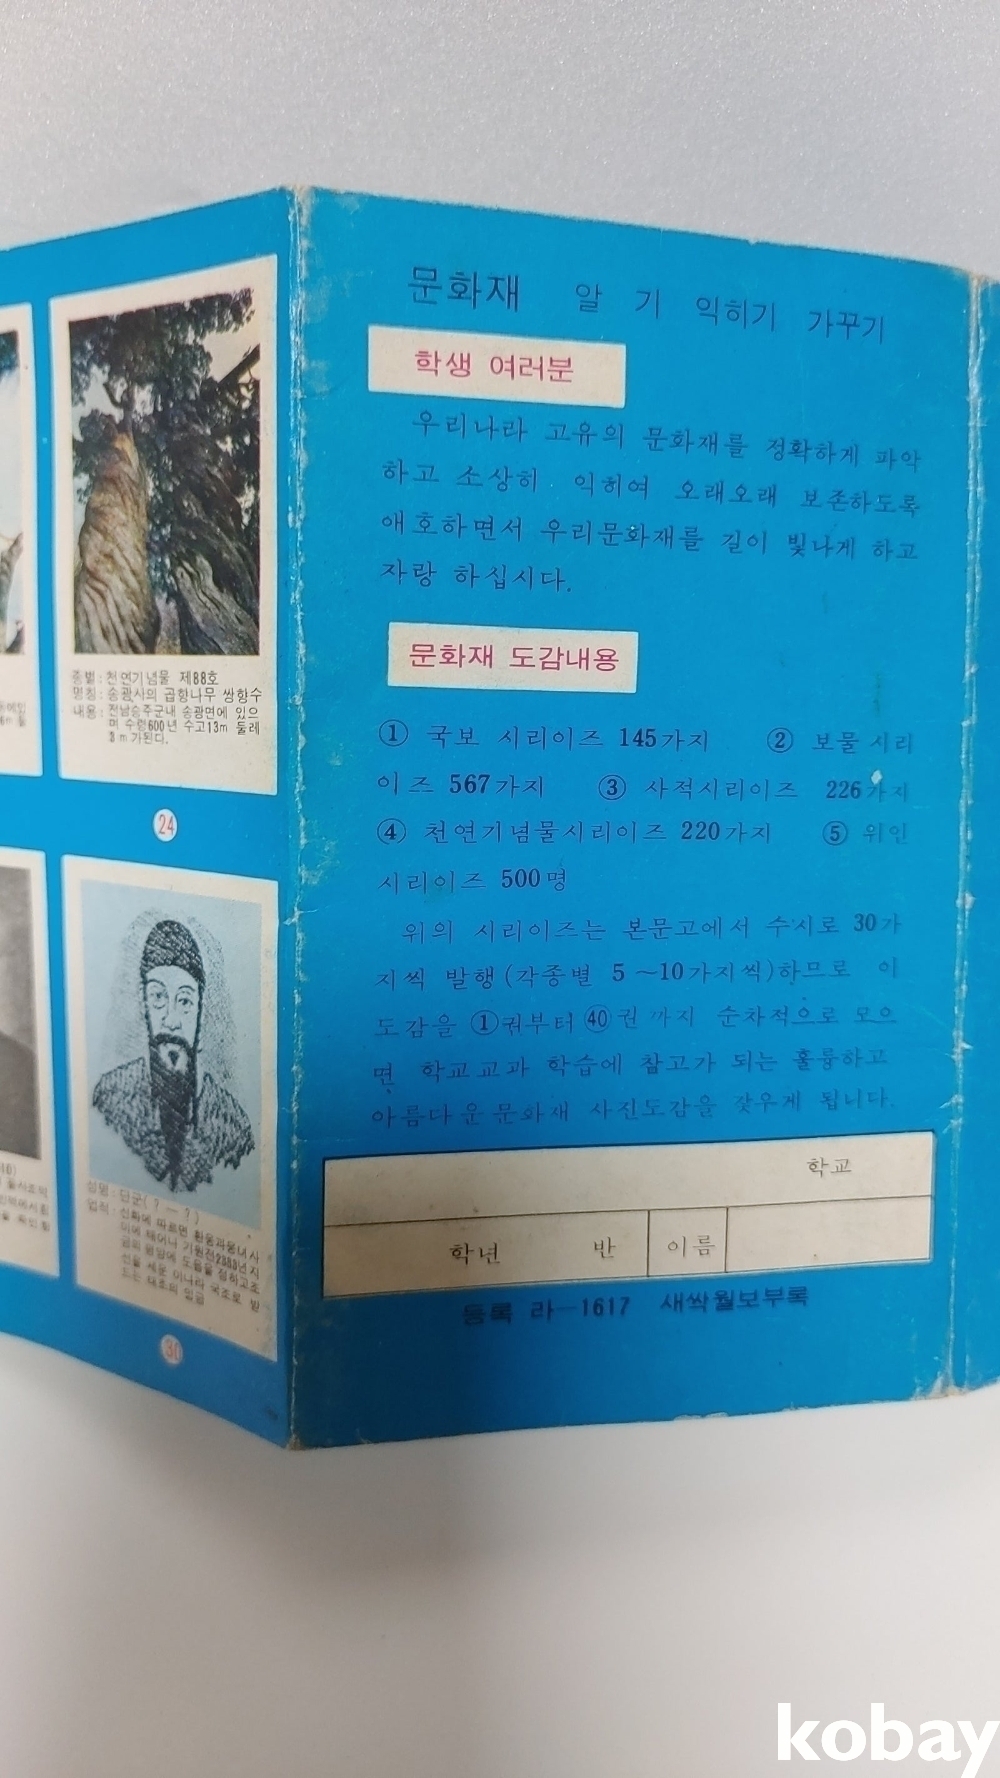 문화재 알 기 익히기 가꾸기
학생 여러분
우리나라 고유의 문화재를 정확하게 파악
하고 소상히 익히여 오래오래 보존하도록
애호하면서 우리문화재를 길이 빛나게 하고
자랑 하십시다.
문화재 도감내용
① 국보 시리이즈 145가지 ② 보물 시리
이즈 567가지 ③ 사적시리이즈 226가지
④ 천연기념물시리이즈 220가지 ⑤ 위인
시리이즈 500명
위의 시리이즈는 본문고에서 수시로 30가
지씩 발행(각종별 5~10가지씩)하므로 이
도감을 ①권부터 ㊵권 까지 순차적으로 모으
면 학교교과 학습에 참고가 되는 훌륭하고
아름다운문화재 사진도감을 갖우게 됩니다.
학교
학년 반 이름
등록 라—1617 새싹월보부록
종별: 천연기념물 제88호
명칭: 송광사의 곱향나무 쌍향수
내용: 전남승주군내 송광면에 있으
며 수령600년 수고13m 둘레
3m가된다.
24
성명: 단군(?—?)
업적: 신화에 따르면 환웅과웅녀사
이에 태어나 기원전2333년지
금의 평양에 도읍을 정하고조
선을 세운 이나라 국조로 받
드는 태초의 임금
30
kobay